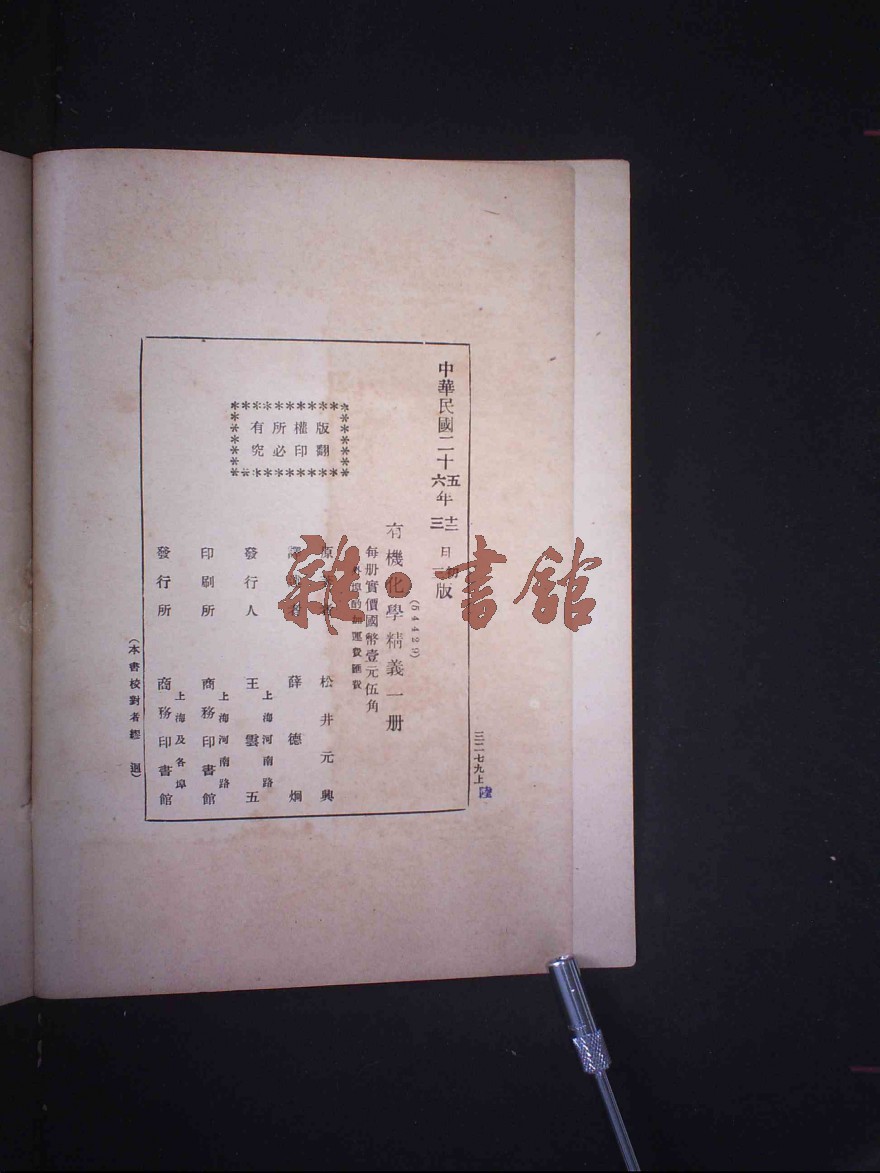 中華民國二十五年十二月初版
六年三月三版
(54429)
有機化學精義一册
每册實價國幣壹元伍角
外埠酌加運費匯費
原著者 松井元興
譯述者 薛德炯
發行人 王雲五
上海河南路
印刷所 商務印書館
上海河南路
發行所 商務印書館
上海及各埠
版權所有
翻印必究
(本書校對者 迴)
三二七九上
雜·書館